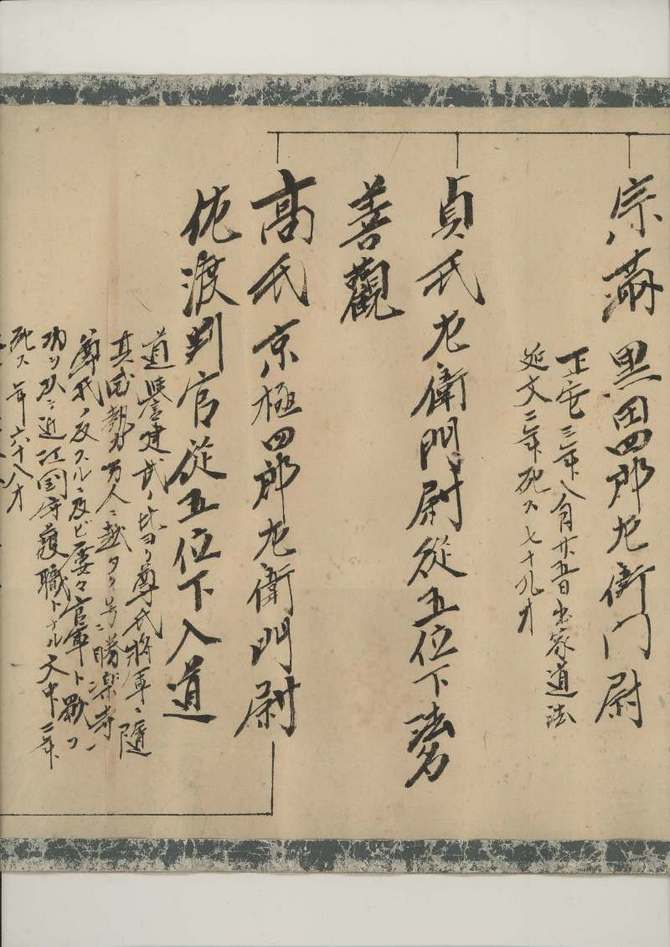 宗滿 黒田四郎左衛門尉
正安三年八月廿五日出家道法
延文二年死ス七十九才
貞氏左衛門尉從五位下法名
善觀
高氏京極四郎左衛門尉
佐渡判官從五位下入道
道譽建武ノ比ヨリ尊氏将軍ニ隨
其威勢万人ニ越タリ号ニ勝楽寺
尊氏ノ反スルニ及ビ屡々官軍ト戰フ
功ヲ以テ近江国守護職トナル文中二年
死ス年六十八才